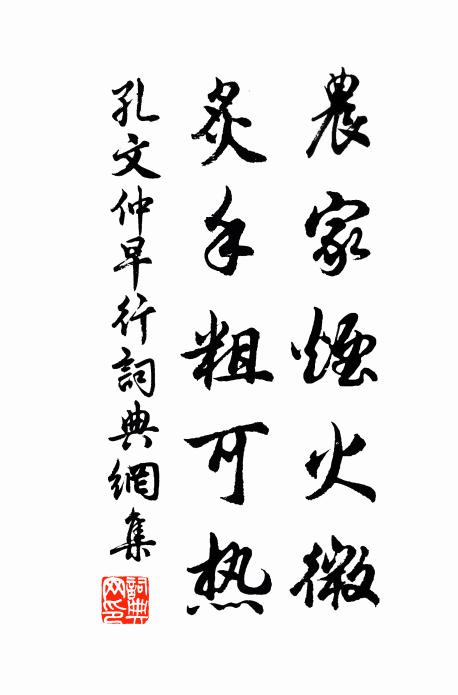 農家煙火微
炙手粗可热
孔文仲早行詞典網集
詞典网印